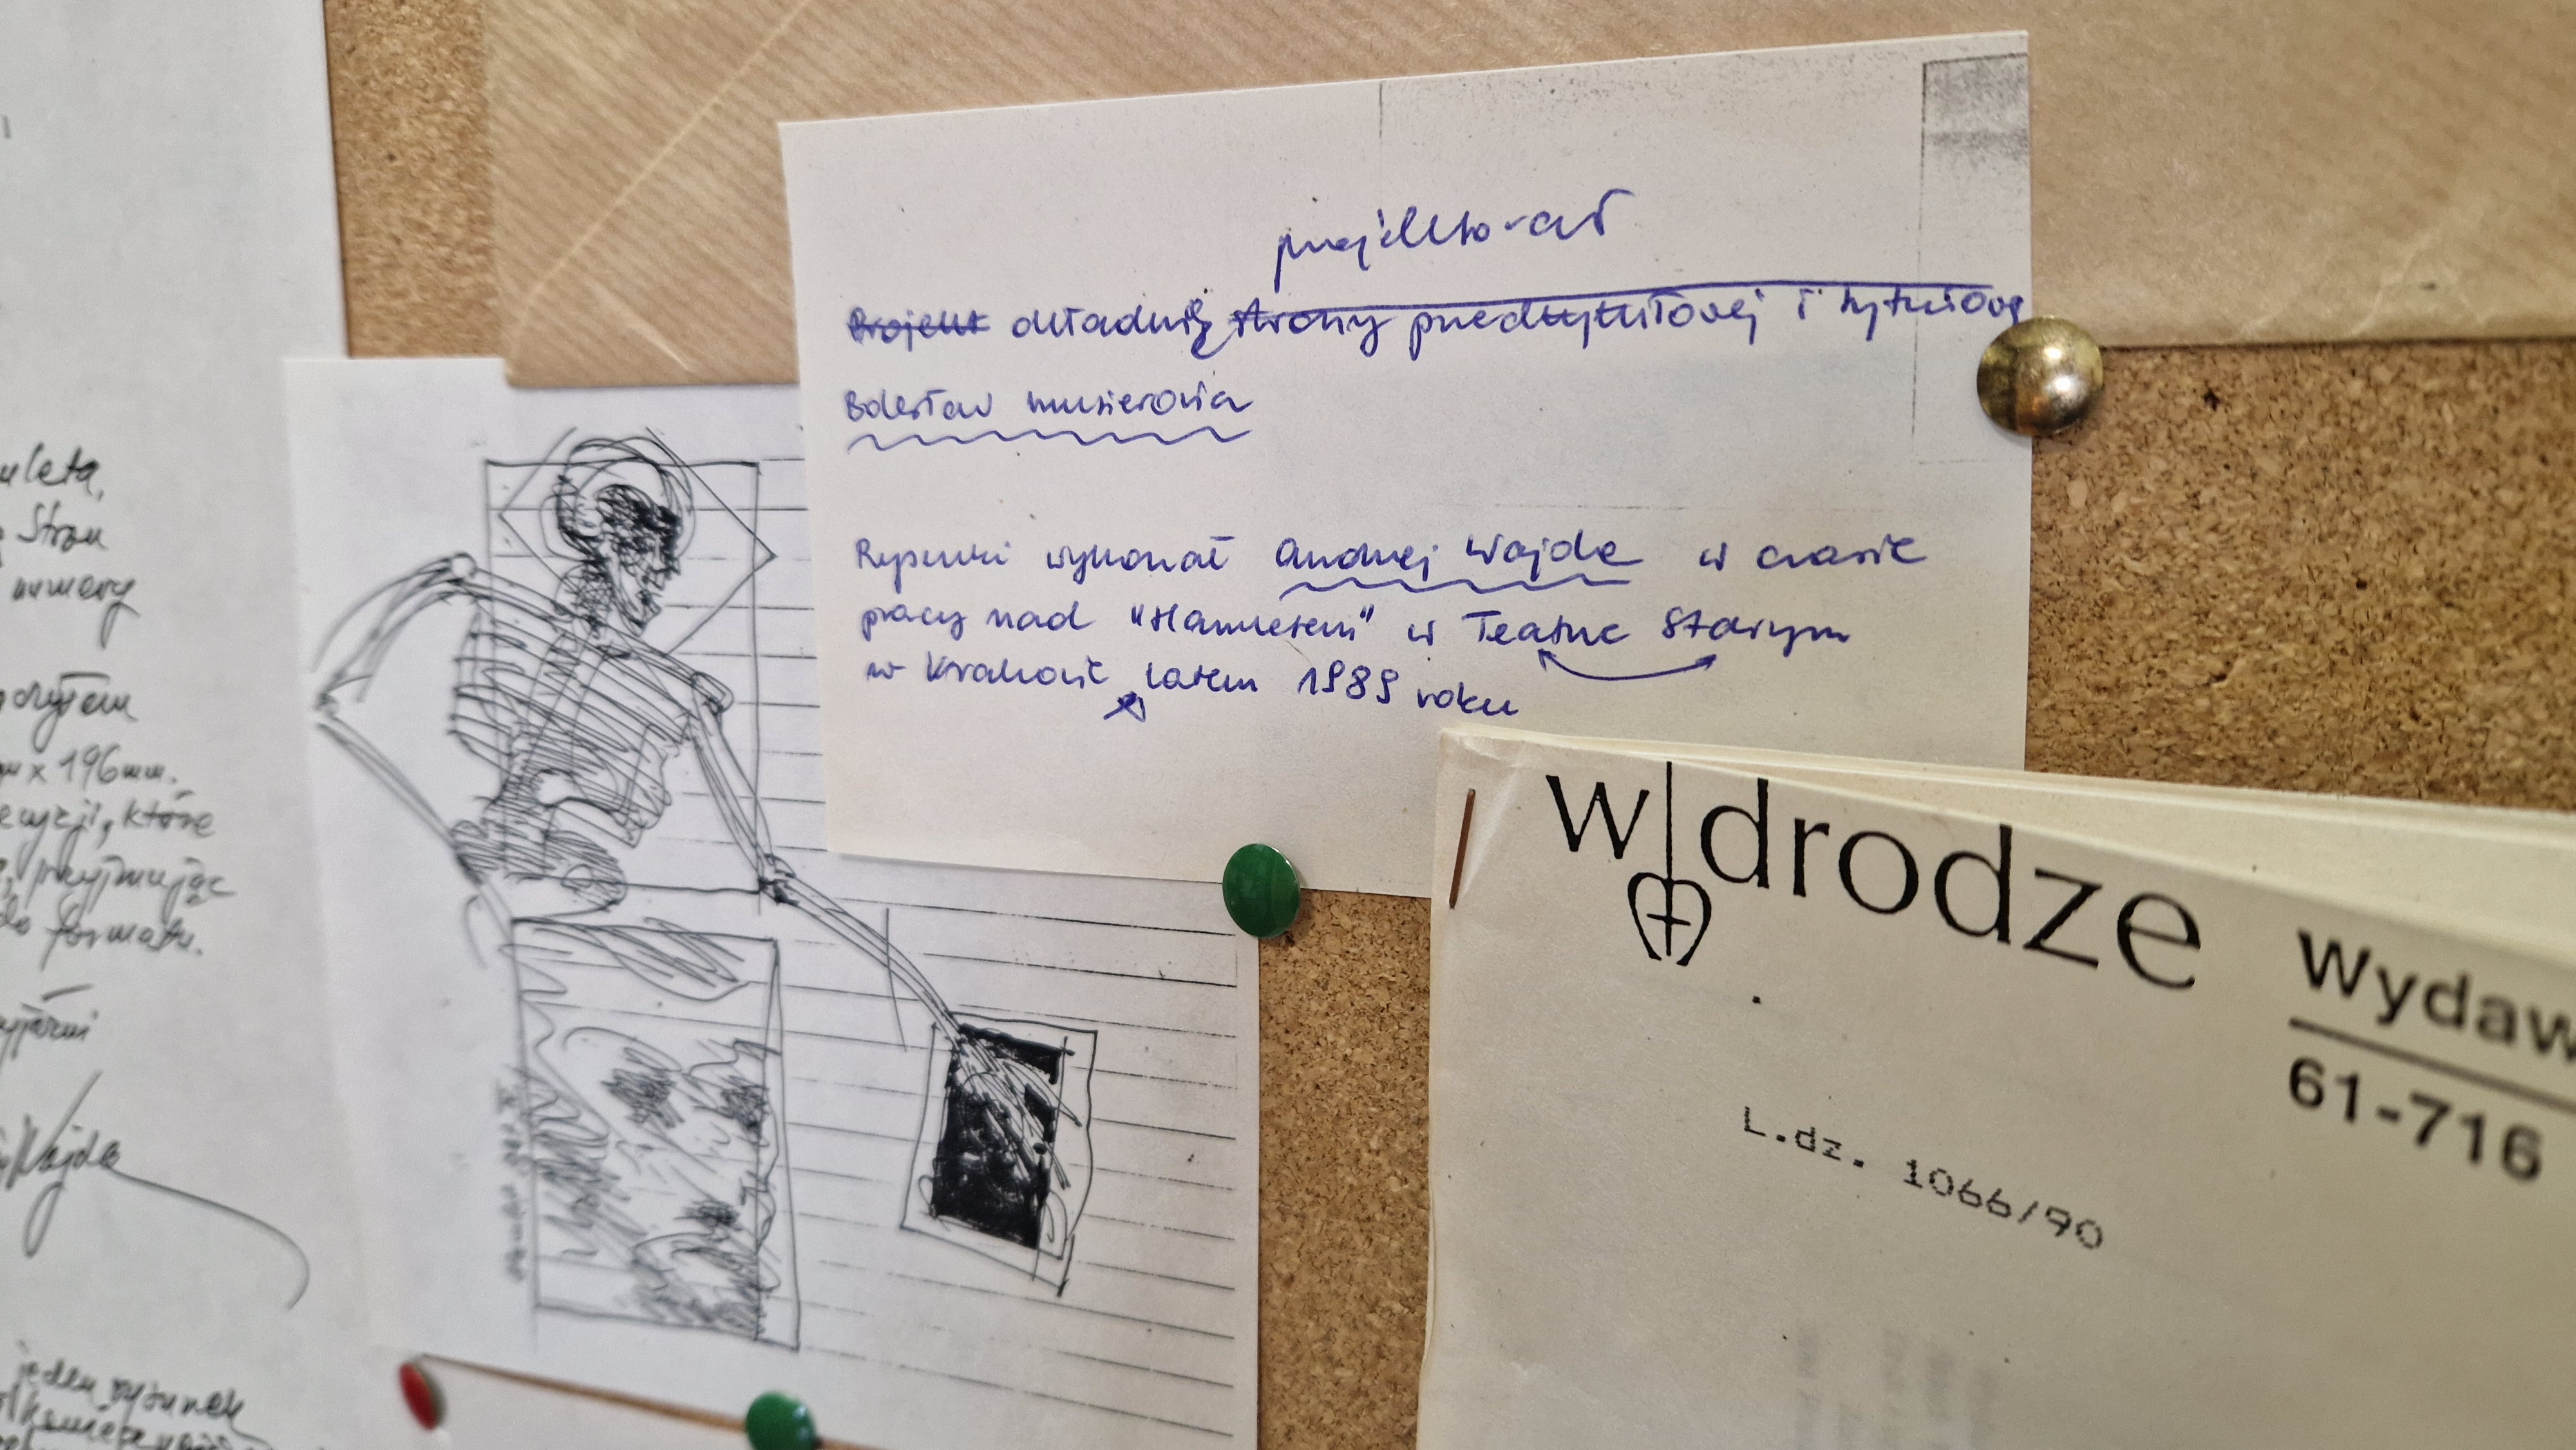 uleta,
Stron
numery
x 196mm.
ecyzji, które
przyjmując
formatu.
Wajda
jeden rysunek
projektował
Projekt okładkę strony przedtytułowej i tytułowej
Bolesław Musierowicz
Rysunki wykonał Andrzej Wajda w czasie
pracy nad "Hamletem" w Teatrze Starym
w Krakowie latem 1989 roku
w drodze
Wydaw
61-716
L.dz. 1066/90